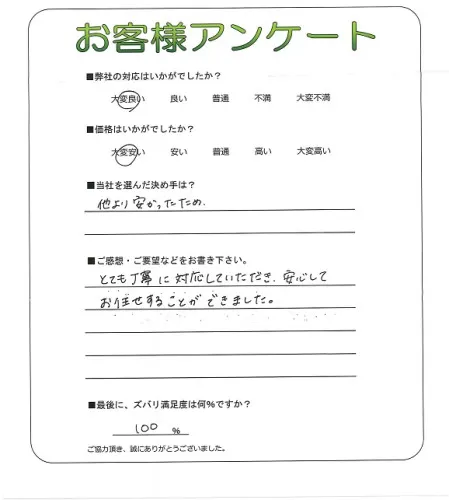 お客様アンケート
■弊社の対応はいかがでしたか?
大変良い 良い 普通 不満 大変不満
■価格はいかがでしたか?
大変安い 安い 普通 高い 大変高い
■当社を選んだ決め手は?
他より安かったため.
■ご感想・ご要望などをお書き下さい。
とても丁寧に対応していただき.安心して
お任せすることができました。
■最後に、ズバリ満足度は何%ですか?
100 %
ご協力頂き、誠にありがとうございました。